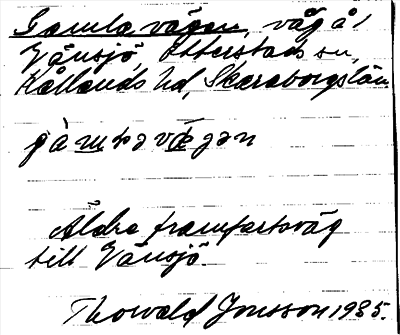 Gamla vägen, väg å
Vänsjö, Otterstads sn,
Kållands hd, Skaraborgs län.
gàmɩavǽgən
Äldre framfartsväg
till Vänsjö.
Thorvald Jonsson 1985.